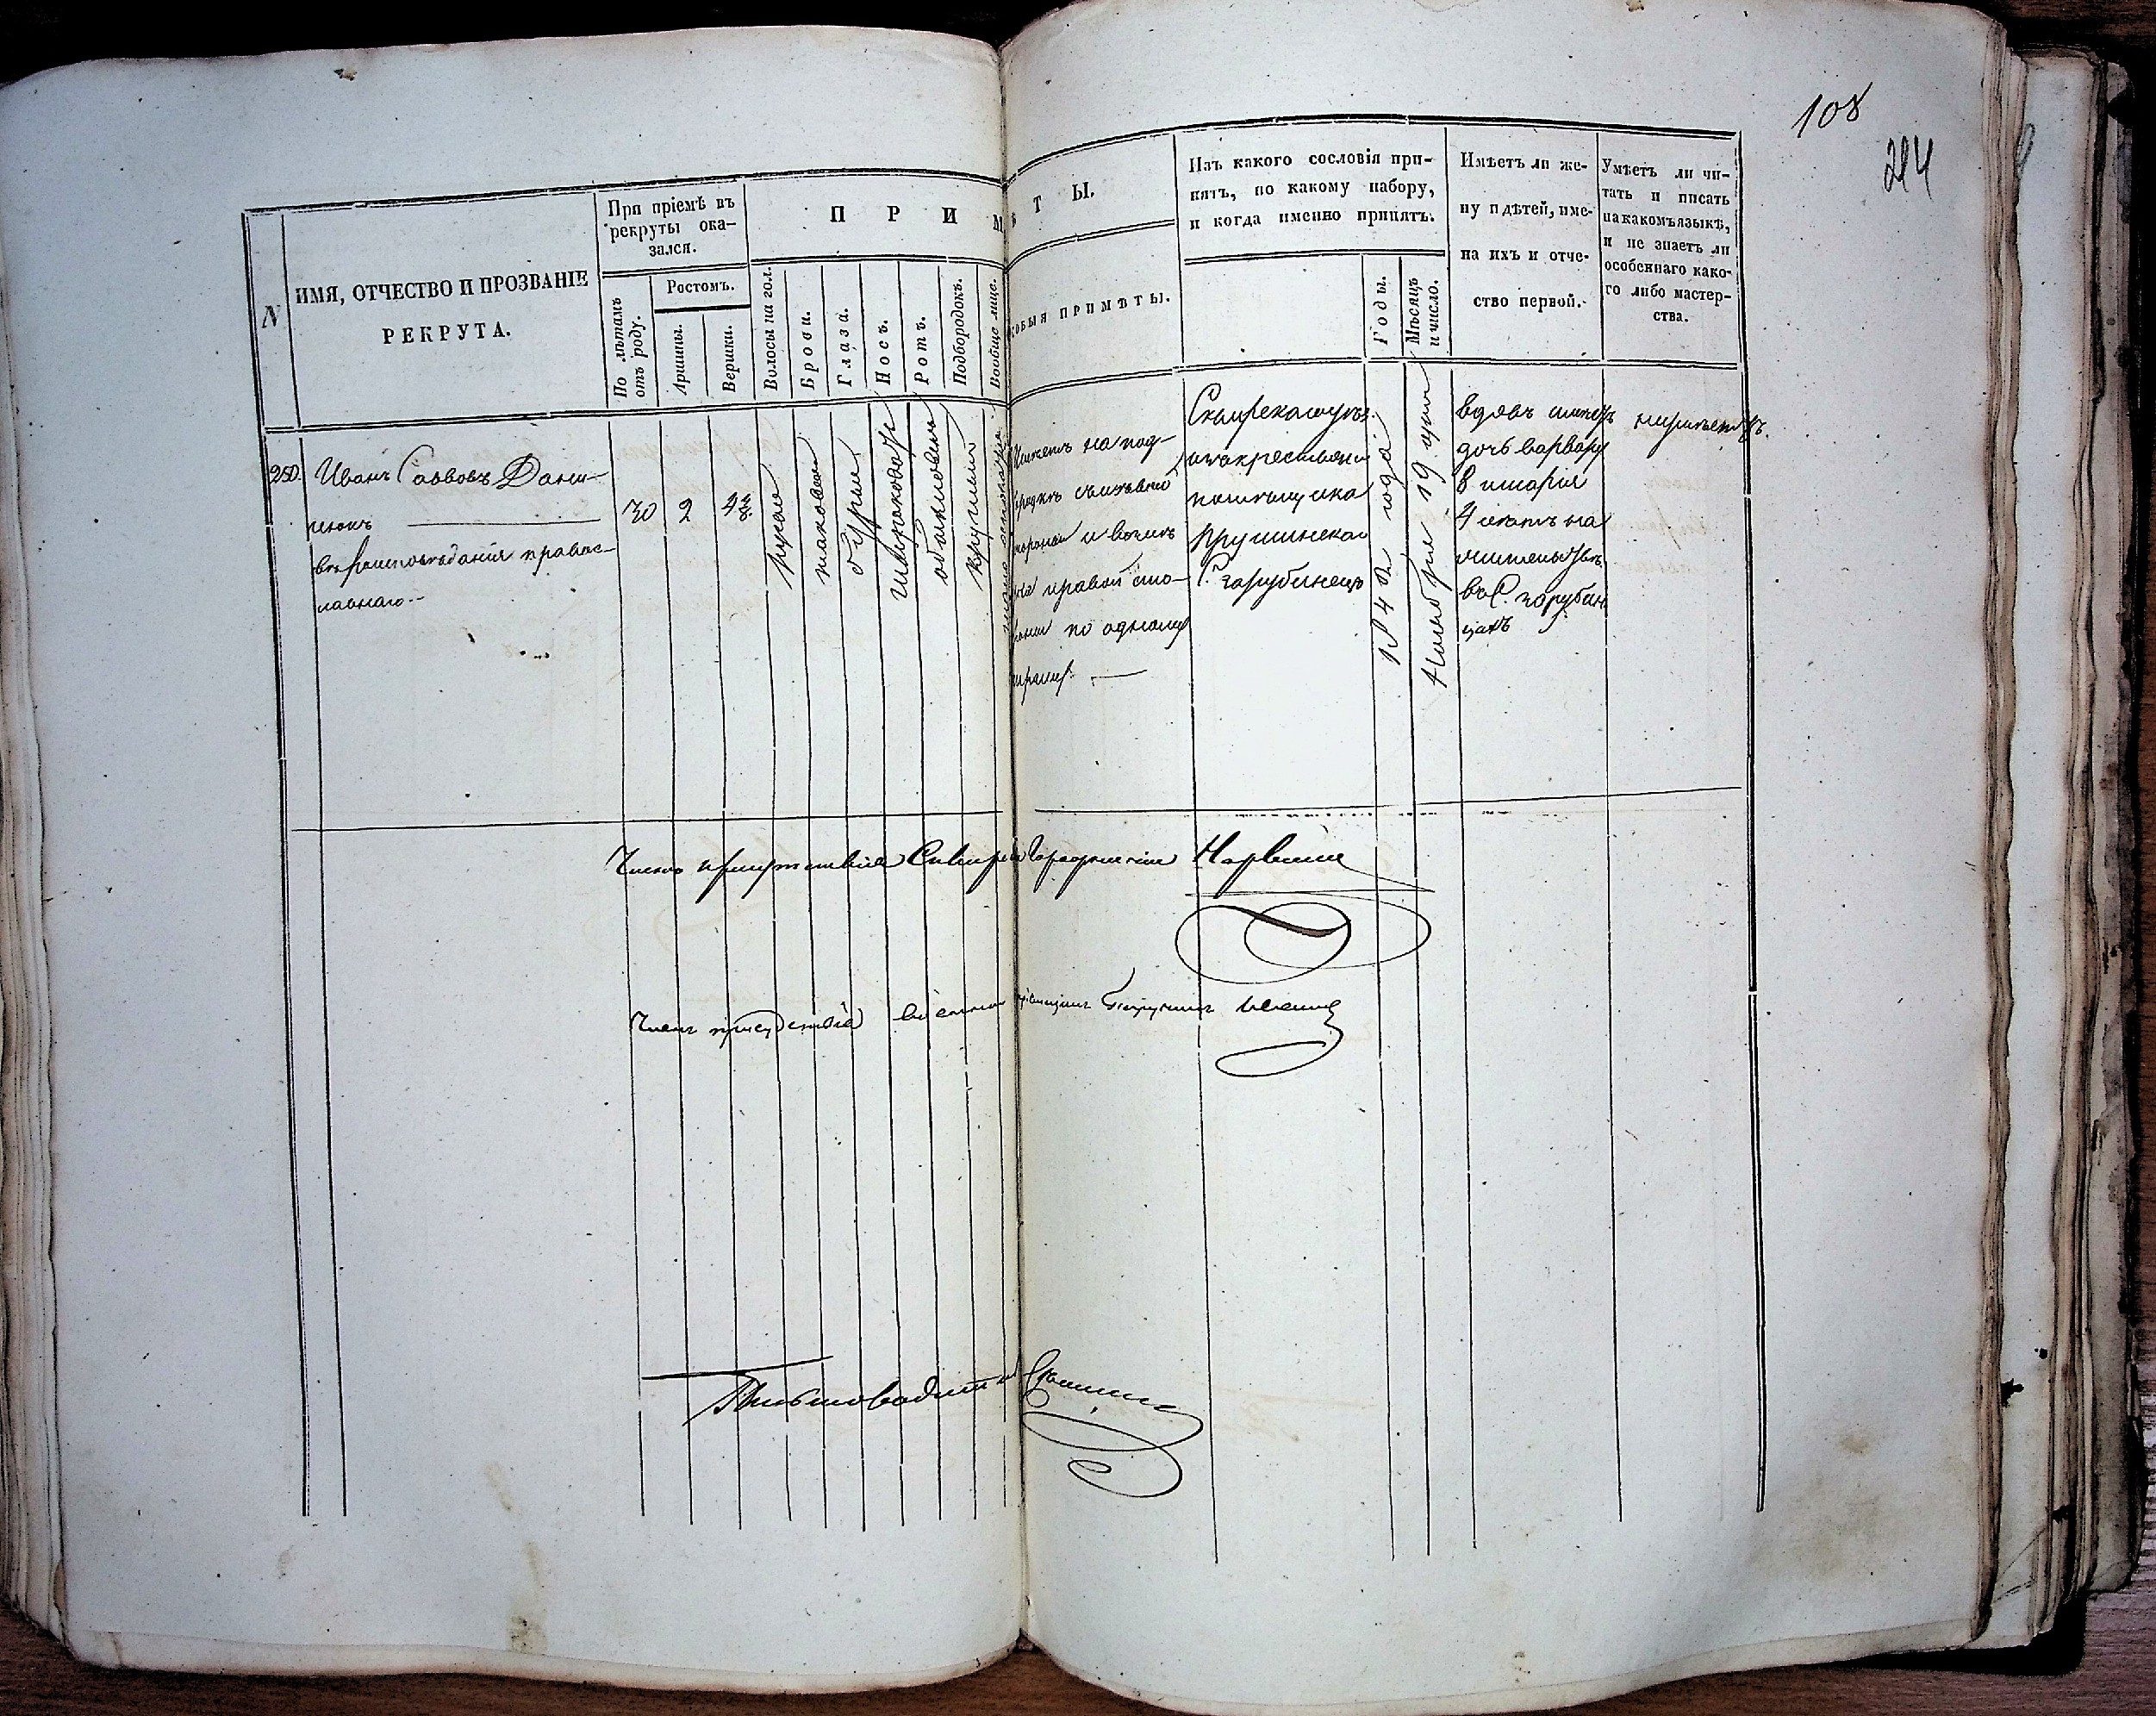 108
214
N
ИМЯ, ОТЧЕСТВО И ПРОЗВАНІЕ
РЕКРУТА.
При пріемѣ въ
рекруты ока-
зался.
По лѣтамъ
отъ роду.
Ростомъ.
Аршины.
Вершки.
П Р И М
Волосы на гол.
Брови.
Глаза.
Носъ.
Ротъ.
Подбородокъ.
Вообще лице.
Ѣ Т Ы.
ОСОБЫЯ ПРИМѢТЫ.
Изъ какого сословія при-
нятъ, по какому набору,
и когда именно принятъ.
Годы.
Мѣсяцъ
и число.
Имѣетъ ли же-
ну и дѣтей, име-
на ихъ и отче-
ство первой.
Умѣетъ ли чи-
тать и писать
на какомъ языкѣ,
и не знаетъ ли
особеннаго како-
го либо мастер-
ства.
250.
Иванъ Саввовъ Дани-
люкъ
вѣроисповѣданія правос-
лавнаго.
30
2
4 3/8
русые
таковыя
бурыя
широковат
обыкновен
круглый
Имѣетъ на под-
бородкѣ съ лѣвой
стороны и
на правой сто-
роне по одному
шраму.
изъ крестьянъ
помѣщика
Прушинскаго
С. Зарубинецъ
1842 года
Ноября 19 дня
вдовъ имѣетъ
дочь варвару
4 летъ на
жительствѣ
въ С. Зарубин
цахъ
неумѣетъ.
Членъ присутствія
Членъ присудствія
Письмоводитель